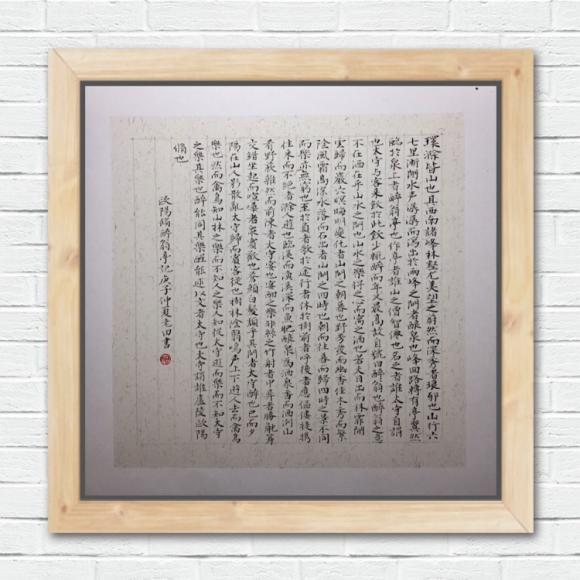 環滁皆山也其西南諸峰林壑尤美望之蔚然而深秀者琅邪也山行六
七里漸聞水声潺潺而瀉出於兩峰之間者釀泉也峰回路轉有亭翼然
臨於泉上者醉翁亭也作亭者誰山之僧智僊也名之者誰太守自謂
也太守与客來飲於此飲少輒醉而年又最高故自號曰醉翁也醉翁之意
不在酒在乎山水之間也山水之樂得之心而寓之酒也若夫日出而林霏開
雲歸而巖穴暝晦明變化者山間之朝暮也野芳發而幽香佳木秀而繁
陰風霜高潔水落而石出者山間之四時也朝而往暮而歸四時之景不同
而樂亦無窮也至於負者歌於途行者休於樹前者呼後者應傴僂提攜
往來而不絕者滁人遊也臨溪而漁溪深而魚肥釀泉為酒泉香而酒洌山
肴野蔌雜然而前陳者太守宴也宴酣之樂非絲非竹射者中弈者勝觥籌
交錯坐起而諠譁者衆賓歡也蒼顏白髮頹乎其間者太守醉也已而夕
陽在山人影散亂太守歸而賓客從也樹林陰翳鳴声上下遊人去而禽鳥
樂也然而禽鳥知山林之樂而不知人之樂人知從太守遊而樂而不知太守
之樂其樂也醉能同其樂醒能述以文者太守也太守謂誰廬陵歐陽
脩也
歐陽脩醉翁亭記庚子仲夏老田書